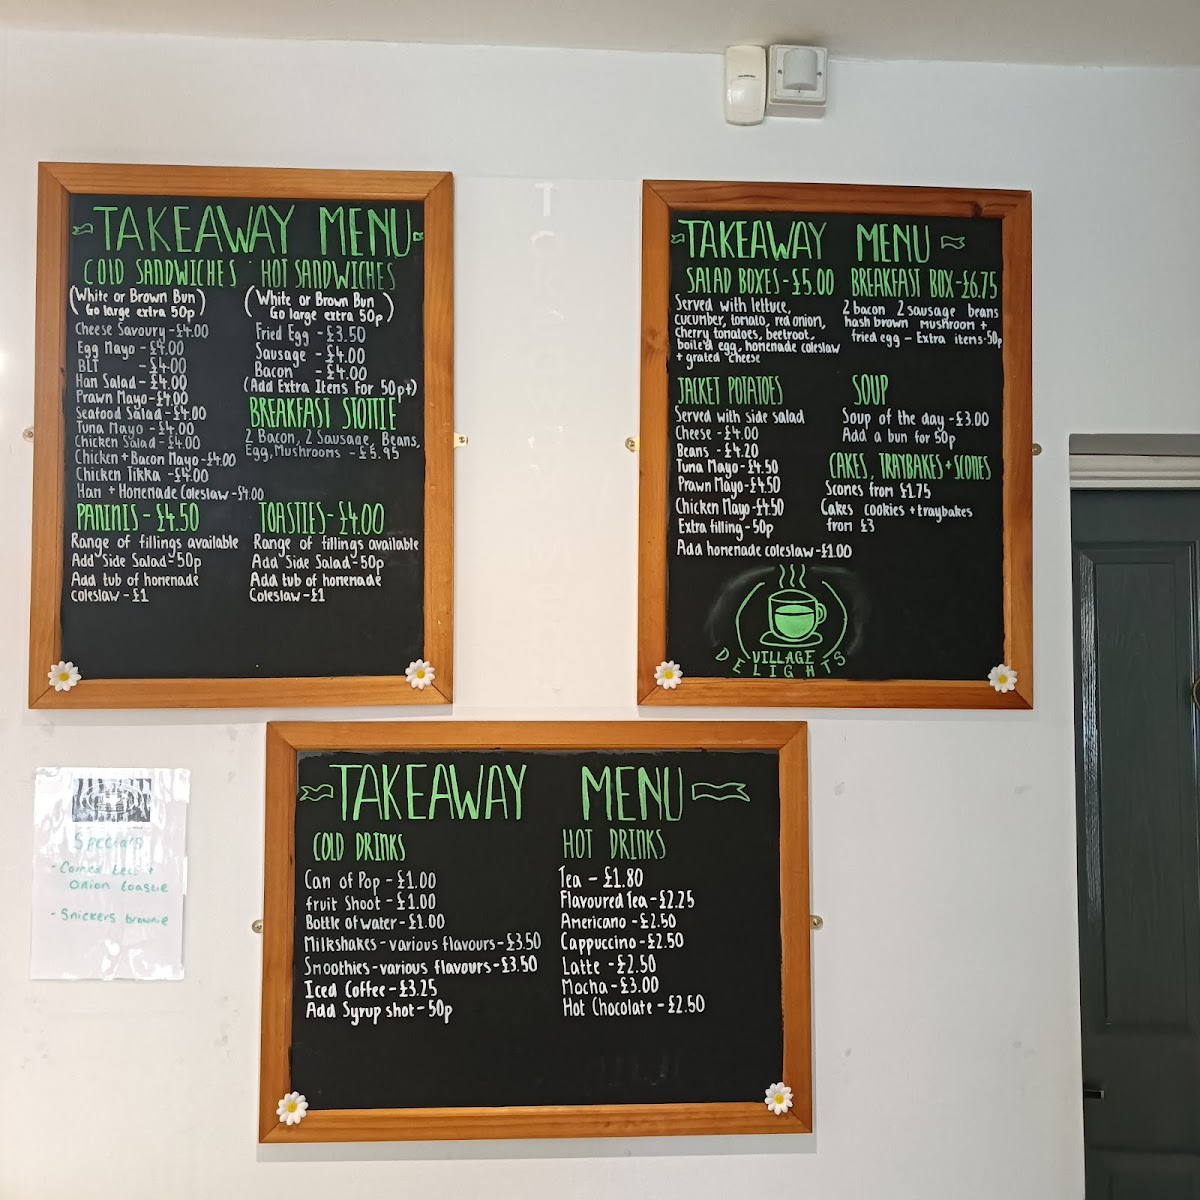 TAKEAWAY MENU
COLD SANDWICHES
(White or Brown Bun)
Go large extra 50p)
Cheese Savoury - £4.00
Egg Mayo - £4.00
BLT - £4.00
Han Salad - £4.00
Prawn Mayo - £4.00
Seafood Salad - £4.00
Tuna Mayo - £4.00
Chicken Salad - £4.00
Chicken + Bacon Mayo - £4.00
Chicken Tikka - £4.00
Han + Homemade Coleslaw - £4.00
PANINIS - £4.50
Range of fillings available
Add Side Salad - 50p
Add tub of homemade
coleslaw - £1
HOT SANDWICHES
(White or Brown Bun
Go large extra 50p)
Fried Egg - £3.50
Sausage - £4.00
Bacon - £4.00
(Add Extra Items For 50p+)
BREAKFAST STOTTIE
2 Bacon, 2 Sausage, Beans,
Egg, Mushrooms - £5.95
TOASTIES - £4.00
Range of fillings available
Add Side Salad - 50p
Add tub of homemade
Coleslaw - £1
TAKEAWAY MENU
SALAD BOXES - £5.00
Served with lettuce,
cucumber, tomato, red onion,
cherry tomatoes, beetroot,
boiled egg, homemade coleslaw
+ grated cheese
JACKET POTATOES
Served with side salad
Cheese - £4.00
Beans - £4.20
Tuna Mayo - £4.50
Prawn Mayo - £4.50
Chicken Mayo - £4.50
Extra filling - 50p
Add homemade coleslaw - £1.00
BREAKFAST BOX - £6.75
2 bacon 2 sausage beans
hash brown mushroom +
fried egg - Extra items - 50p
SOUP
Soup of the day - £3.00
Add a bun for 50p
CAKES, TRAYBAKES + SCONES
Scones from £1.75
Cakes cookies + traybakes
from £3
VILLAGE
DELIGHTS
TAKEAWAY MENU
COLD DRINKS
Can of Pop - £1.00
fruit Shoot - £1.00
Bottle of water - £1.00
Milkshakes - various flavours - £3.50
Smoothies - various flavours - £3.50
Iced Coffee - £3.25
Add Syrup shot - 50p
HOT DRINKS
Tea - £1.80
Flavoured Tea - £2.25
Americano - £2.50
Cappuccino - £2.50
Latte - £2.50
Mocha - £3.00
Hot Chocolate - £2.50
Specials
- Corned beef +
Onion toastie
- Snickers brownie